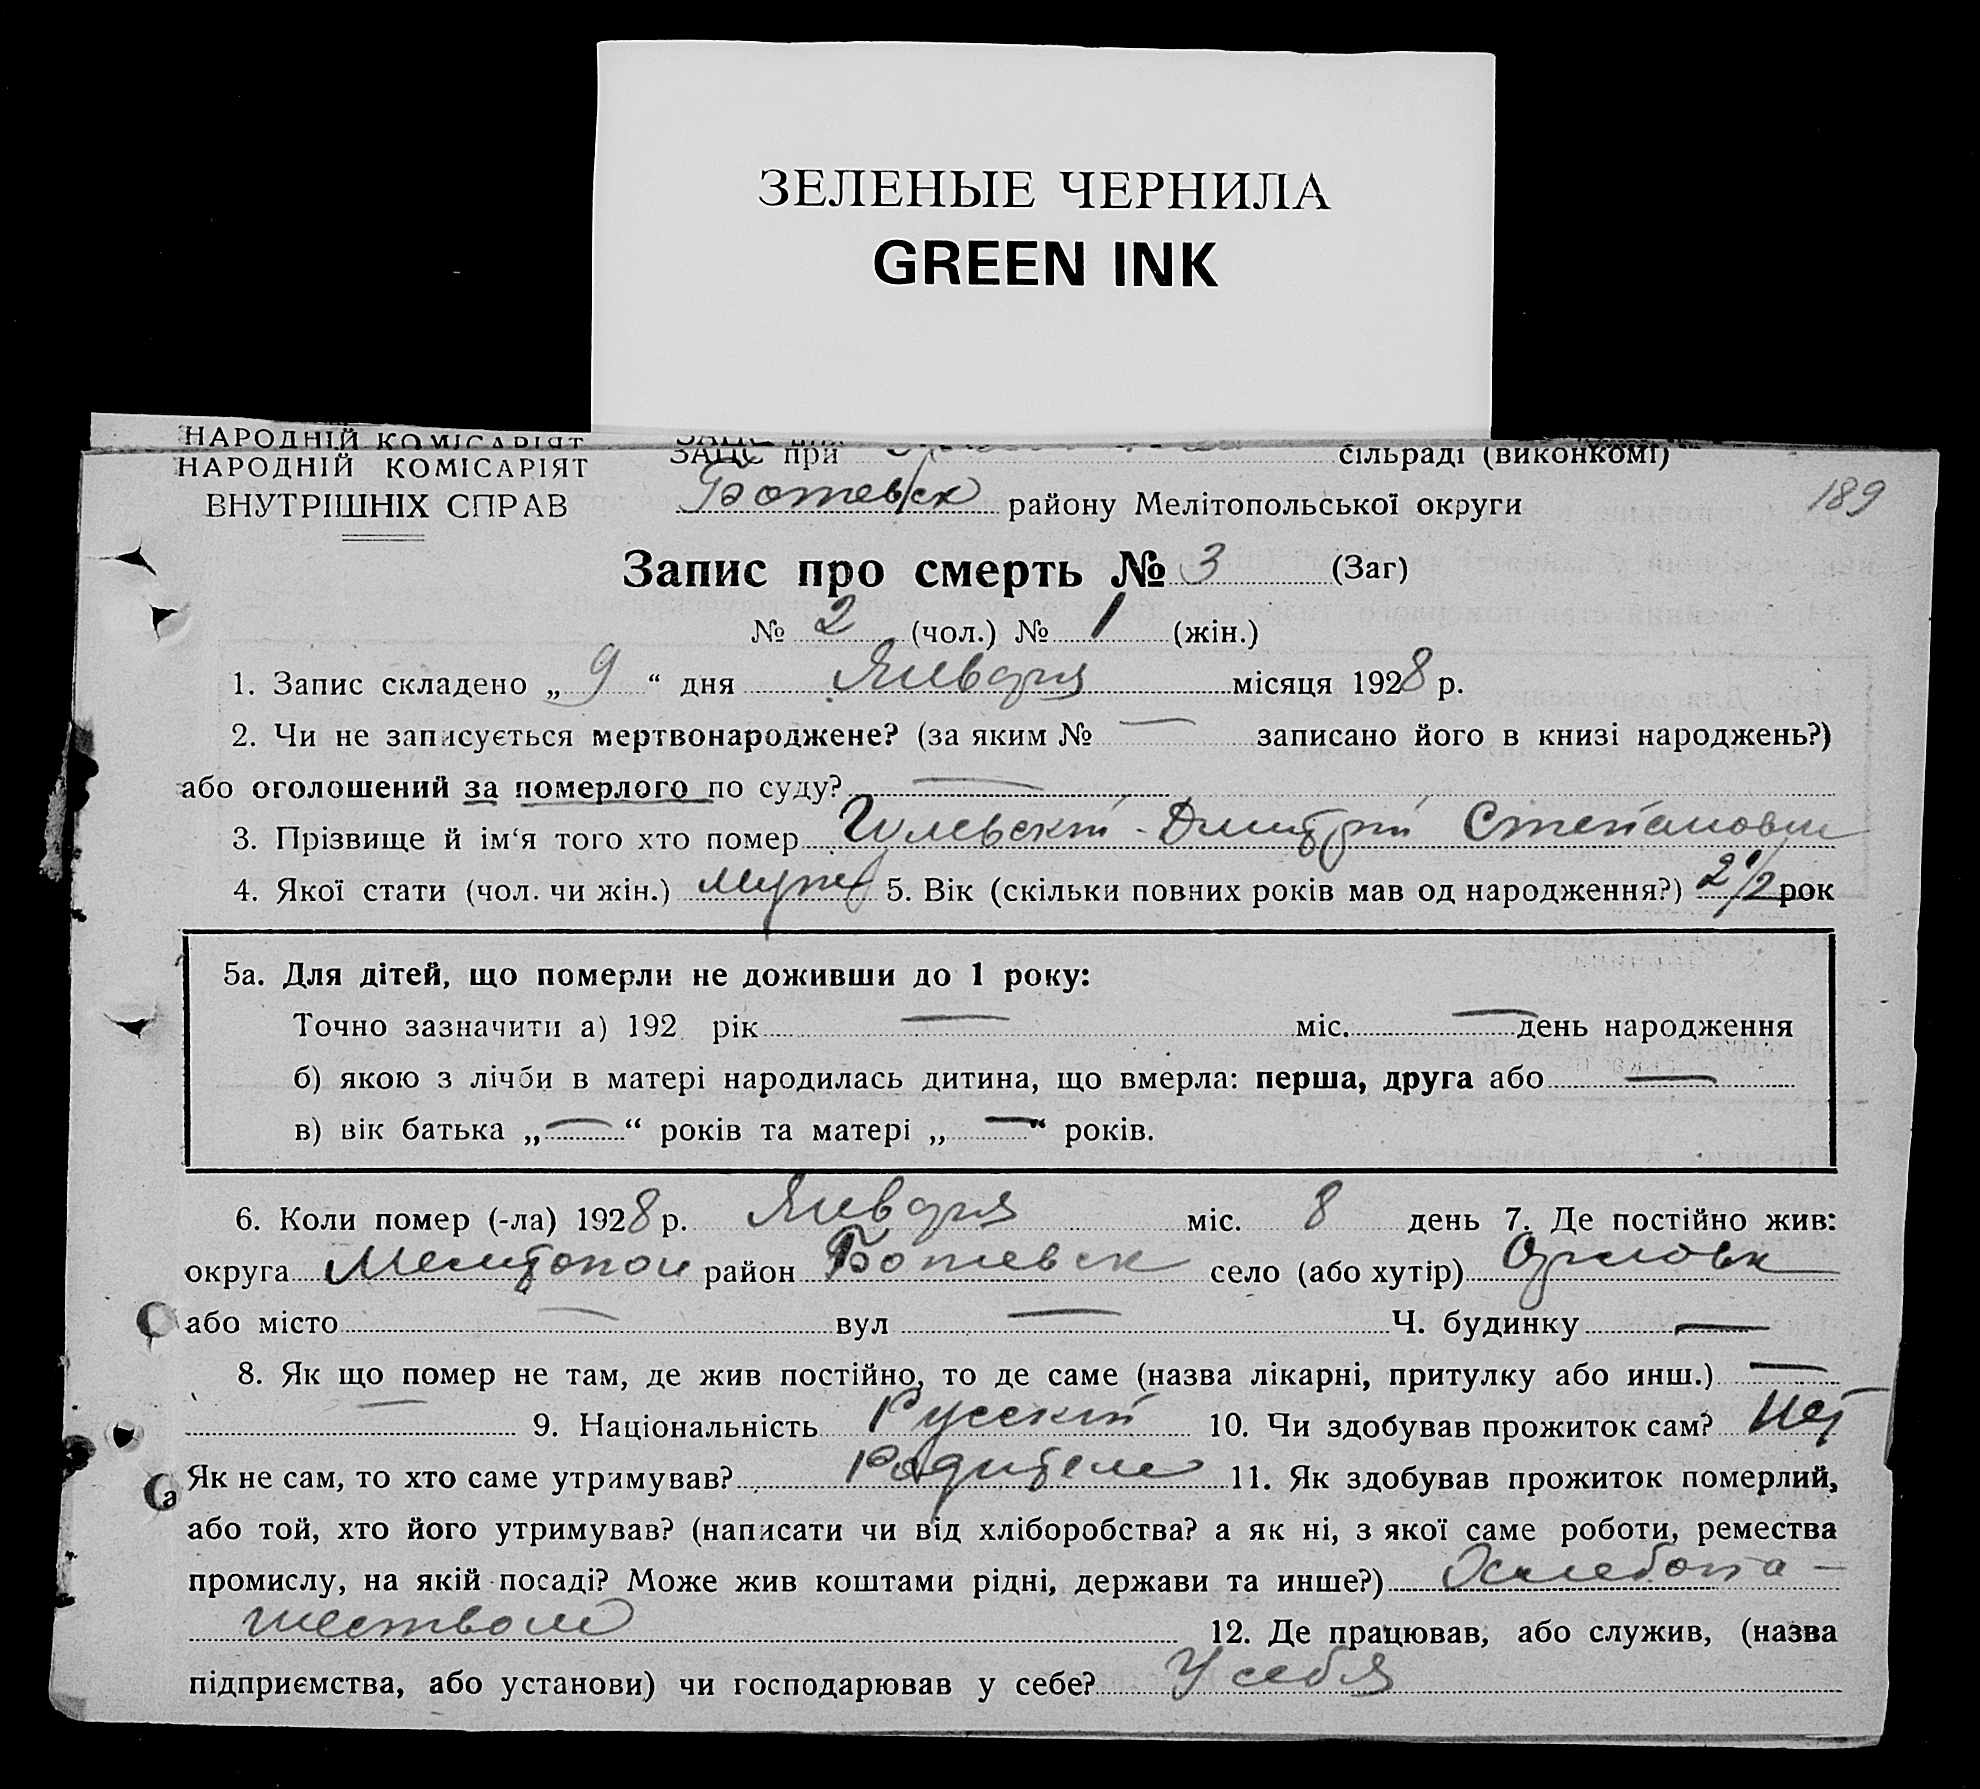 ЗЕЛЕНЫЕ ЧЕРНИЛА
GREEN INK
НАРОДНІЙ КОМІСАРІЯТ
НАРОДНІЙ КОМІСАРІЯТ ЗАЦС при сільраді (виконкомі)
ВНУТРІШНІХ СПРАВ Ботевск району Мелітопольської округи 189
Запис про смерть № 3 (Заг)
№ 2 (чол.) № 1 (жін.)
1. Запис складено „ 9 “ дня Января місяця 1928 р.
2. Чи не записується мертвонароджене? (за яким № — записано його в книзі народжень?)
або оголошений за померлого по суду? —
3. Прізвище й ім‘я того хто помер Дмитрій Степанович
4. Якої стати (чол. чи жін.) муж 5. Вік (скільки повних років мав од народження?) 2 1/2 рок
5а. Для дітей, що померли не доживши до 1 року:
Точно зазначити а) 192 рік — міс. — день народження
б) якою з лічби в матері народилась дитина, що вмерла: перша, друга або —
в) вік батька „ — “ років та матері „ — “ років.
6. Коли помер (-ла) 1928 р. Января міс. 8 день 7. Де постійно жив:
округа Мелитопол район Ботевск село (або хутір)
або місто — вул — Ч. будинку —
8. Як що помер не там, де жив постійно, то де саме (назва лікарні, притулку або инш.) —
— 9. Національність Русскій 10. Чи здобував прожиток сам? Нет
Як не сам, то хто саме утримував? Родители 11. Як здобував прожиток померлий,
або той, хто його утримував? (написати чи від хліборобства? а як ні, з якої саме роботи, ремества
промислу, на якій посаді? Може жив коштами рідні, держави та инше?)
12. Де працював, або служив, (назва
підприємства, або установи) чи господарював у себе? У себя